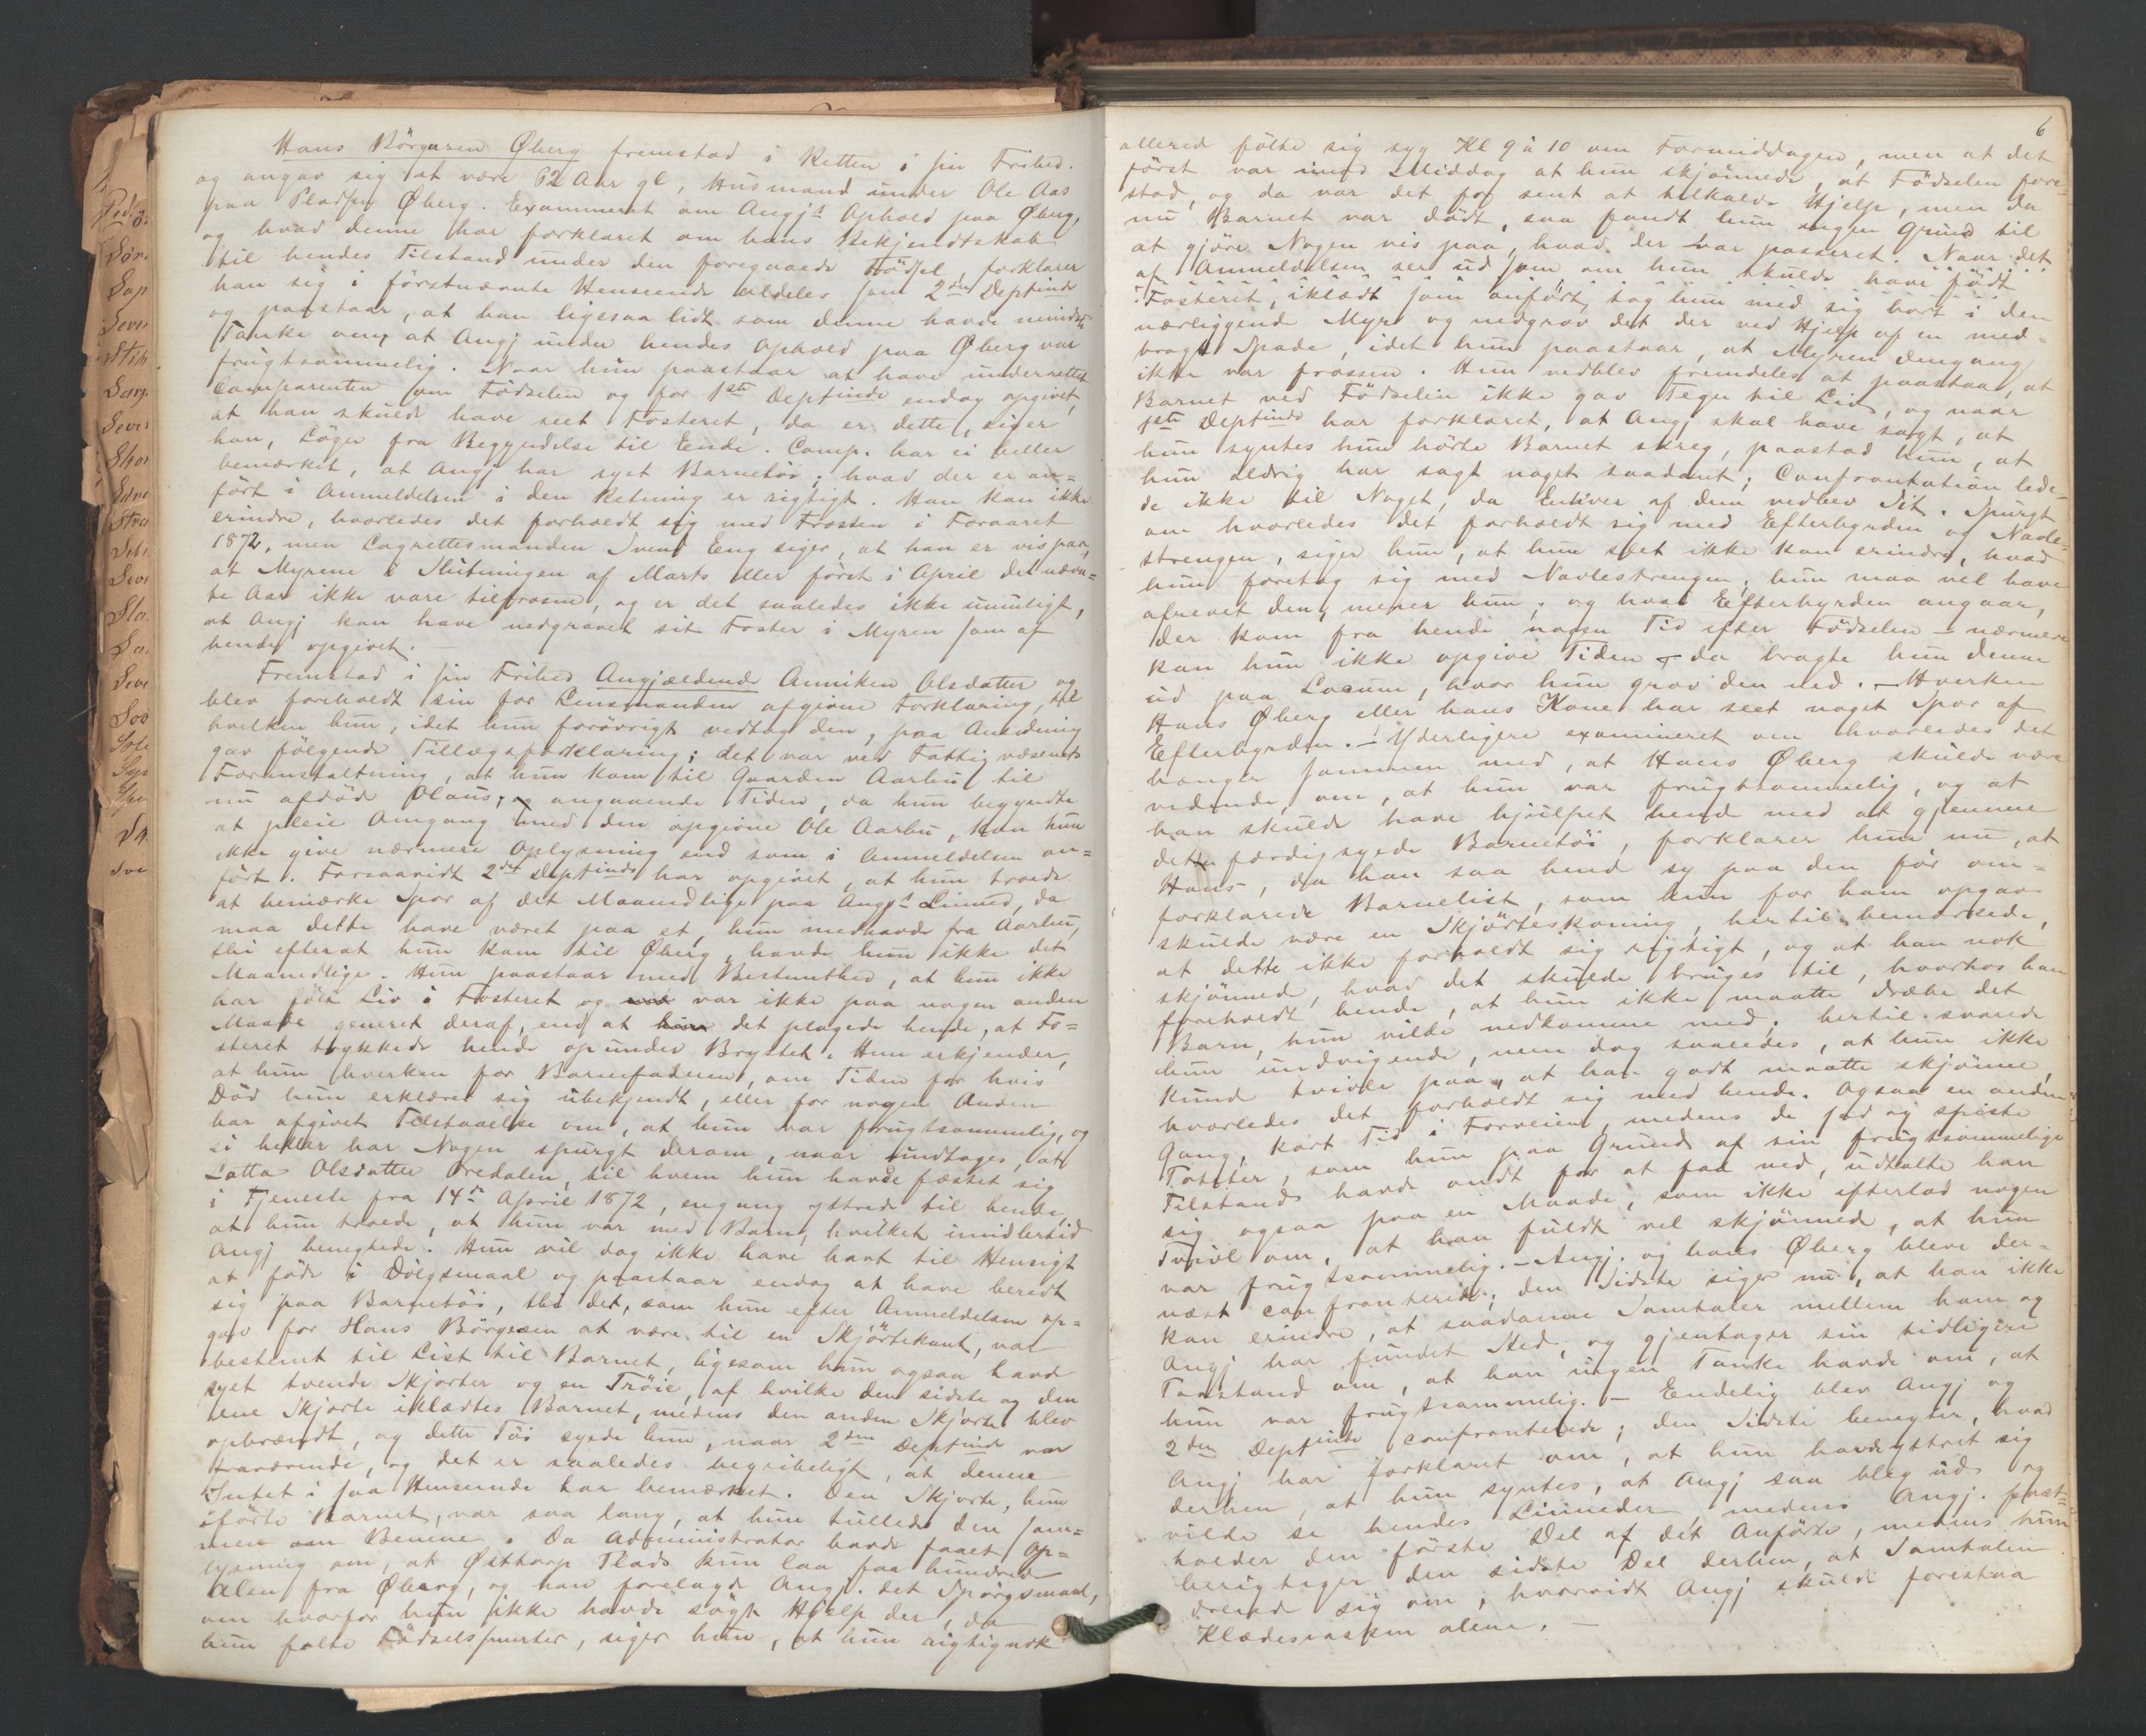 Hans Börgersen Øberg fremstod i Retten i sin Frihed.
og angav sig at være 62 Aar gl, Husmand under Ole Aas
paa Pladsen Øberg. Examineret om Angj's Ophold paa Øberg,
og hvad denne har forklaret om hans Bekjendtskab
til hendes Tilstand under den foregaaede Födsel, forklarer
han sig i förstnævnte Henseende aldeles som 2den Deptinde
og paastaar, at han ligesaa lidt som denne havde mindste
Tanke om, at Angj under hendes Ophold paa Øberg var
frugtsommelig. Naar hun paastaar at have underrettet
Comparenten om Födselen og for 1ste Deptinde endog opgivet,
at han skulde have seet Fosteret, da er dette, siger
han, Lögn fra Begyndelse til Ende. Comp. har ei heller
bemærket, at Angj har syet Barnetöi; hvad der er an=
fört i Anmeldelsen i den Retning er rigtigt. Han kan ikke
erindre, hvorledes det forholdt sig med Frosten i Foraaret
1872, men Lagrettesmanden Svend Eng siger, at han er vis paa,
at Myrene i Slutningen af Marts eller först i April det nævn=
te Aar ikke vare tilfrosne, og er det saaledes ikke umuligt,
at Angj kan have nedgravet sit Foster i Myren som af
hende opgivet. —
Fremstod i sin Frihed Angjældende Anniken Olsdatter og
blev foreholdt sin for Lensmanden afgivne Forklaring, til
hvilken hun, idet hun forövrigt vedtog den, paa Anledning
gav fölgende Tillægsforklaring: det var ved Fattigvæsenets
Foranstaltning, at hun kom til Gaarden Aarbu til
nu afdöde Olaus; angaaende Tiden, da hun begyndte
at pleie Omgang med den opgivne Ole Aarbu, kan hun
ikke give nærmere Oplysning end som i Anmeldelsen an=
fört. Forsaavidt 2den Deptinde har opgivet, at hun troede
at bemærke Spor af det Maanedlige paa Angj's Linned, da
maa dette have været paa et, hun medhavde fra Aarbu,
thi efterat hun kom til Øberg, havde hun ikke det
Maanedlige. Hun paastaar med Bestemthed, at hun ikke
har fölt Liv i Fosteret og var ikke paa nogen anden
Maade generet deraf, end at det plagede hende, at Fo=
steret trykkede hende op under Brystet. Hun erkjender,
at hun hverken for Barnefaderen, om Tiden for hvis
Död hun erklærer sig ubekjendt, eller for nogen Anden
har afgivet Tilstaaelse om, at hun var frugtsommelig, og
ei heller har Nogen spurgt derom, naar undtages, at
Lotta Olsdatter Oredalen, til hvem hun havde fæstet sig
i Tjeneste fra 14de April 1872, engang yttrede til hende,
at hun troede, at hun var med Barn, hvilket imidlertid
Angj benegtede. Hun vil dog ikke have havt til Hensigt
at föde i Dölgsmaal og paastaar endog at have beredt
sig paa Barnetöi, thi det, som hun efter Anmeldelsen op=
gav for Hans Börgersen at være til en Skjörtekant, var
bestemt til List til Barnet, ligesom hun ogsaa havd
syet tvende Skjorter og en Tröie, af hvilke den sidste og den
ene Skjorte iklædtes Barnet, medens den anden Skjorte blev
opbrændt, og dette Töi syede hun, naar 2den Deptinde var
fraværende, og det er saaledes begribeligt, at denne
Intet i saa Henseende har bemærket. Den Skjorte, hun
iförte Barnet, var saa lang, at hun tullede den sam=
men om Benene. Da Administrator havde faaet Op=
lysning om, at Østtorp Plads kun laa faa hundrede
Alen fra Øberg, og han forelagde Angj. det Spörgsmaal,
om hvorfor hun ikke havde sögt Hjelp der, da
hun fölte Födselssmerter, siger hun, at hun rigtignok
6
allered fölte sig syg Kl 9 à 10 om Formiddagen, men at det
först var imod Middag at hun skjönnede, at Födselen fore=
stod, og da var det for sent at tilkalde Hjelp, men da
nu Barnet var dödt, saa fandt hun ingen Grund til
at gjöre Nogen vis paa, hvad der var passeret. Naar det
af Anmeldelsen ser ud som om hun skulde have födt
Fosteret, iklædt som anfört, tog hun med sig bort i den
nærliggende Myr og nedgrov det der ved Hjelp af en med=
bragt Spade, idet hun paastaar, at Myren dengang
ikke var frossen. Hun vedblev fremdeles at paastaa, at
Barnet ved Födselen ikke gav Tegn til Liv, og naar
1ste Deptinde har forklaret, at Angj skal have sagt, at
hun syntes hun hörte Barnet skreg, paastod hun, at
hun aldrig har sagt noget saadant; Confrontation lede=
de ikke til Noget, da Enhver af dem vedblev Sit. Spurgt
om hvorledes det forholdt sig med Efterbyrden og Navle=
strengen, siger hun, at hun slet ikke kan erindre, hvad
hun foretog sig med Navlestrengen; hun maa vel have
afrevet den, mener hun; og hvad Efterbyrden angaar,
der kom fra hende nogen Tid efter Födselen — nærmere
kan hun ikke opgive Tiden — da bragte hun denne
ud paa Locum, hvor hun grov den ned. — Hverken
Hans Øberg eller hans Kone har seet noget Spor af
Efterbyrden. — Yderligere examineret om hvorledes det
hænger sammen med, at Hans Øberg skulde være
vidende om, at hun var frugtsommelig, og at
han skulde have hjulpet hende med at gjemme
dette færdigsyede Barnetöi, forklarer hun nu, at
Hans, da han saa hend sy paa den för om=
forklarede Barnelist, som hun for ham opgav
skulde være en Skjörteskoning, hertil bemærkede,
at dette ikke forholdt sig rigtigt, og at han nok
skjönnede, hvad det skulde bruges til, hvorhos han
foreholdt hende, at hun ikke maatte dræbe det
Barn, hun vilde nedkomme med; hertil svarede
hun undvigende, men dog saaledes, at hun ikke
kunde tvivle paa, at han godt maatte skjönne,
hvorledes det forholdt sig med hende. Ogsaa en anden
Gang, kort Tid i Forveien, medens de sad og spiste
Poteter, som hun paa Grund af sin frugtsommelige
Tilstand havde ondt for at faa ned, udtalte han
sig ogsaa paa en Maade, som ikke efterlod nogen
Tvivl om, at han fuldt vel skjönnede, at hun
var frugtsommelig. — Angj. og hans Øberg bleve der=
næst confronterede; den Sidste siger nu, at han ikke
kan erindre, at saadanne Samtaler mellem ham og
Angj har fundet Sted, og gjentager sin tidligere
Paastand om, at han ingen Tanke havde om, at
hun var frugtsommelig. — Endelig blev Angj og
2den Deptinde confronterede; den Sidste benegter, hvad
Angj har forklaret om, at hun havde yttret sig
derhen, at hun syntes, at Angj saa bleg ud og
vilde se hendes Linneder, medens Angj. fast=
holder den förste Del af det Anförte, medens hun
berigtiger den sidste Del derhen, at Samtalen
dreied sig om, hvorvidt Angj skulde forestaa
Klædesvasken alene. —